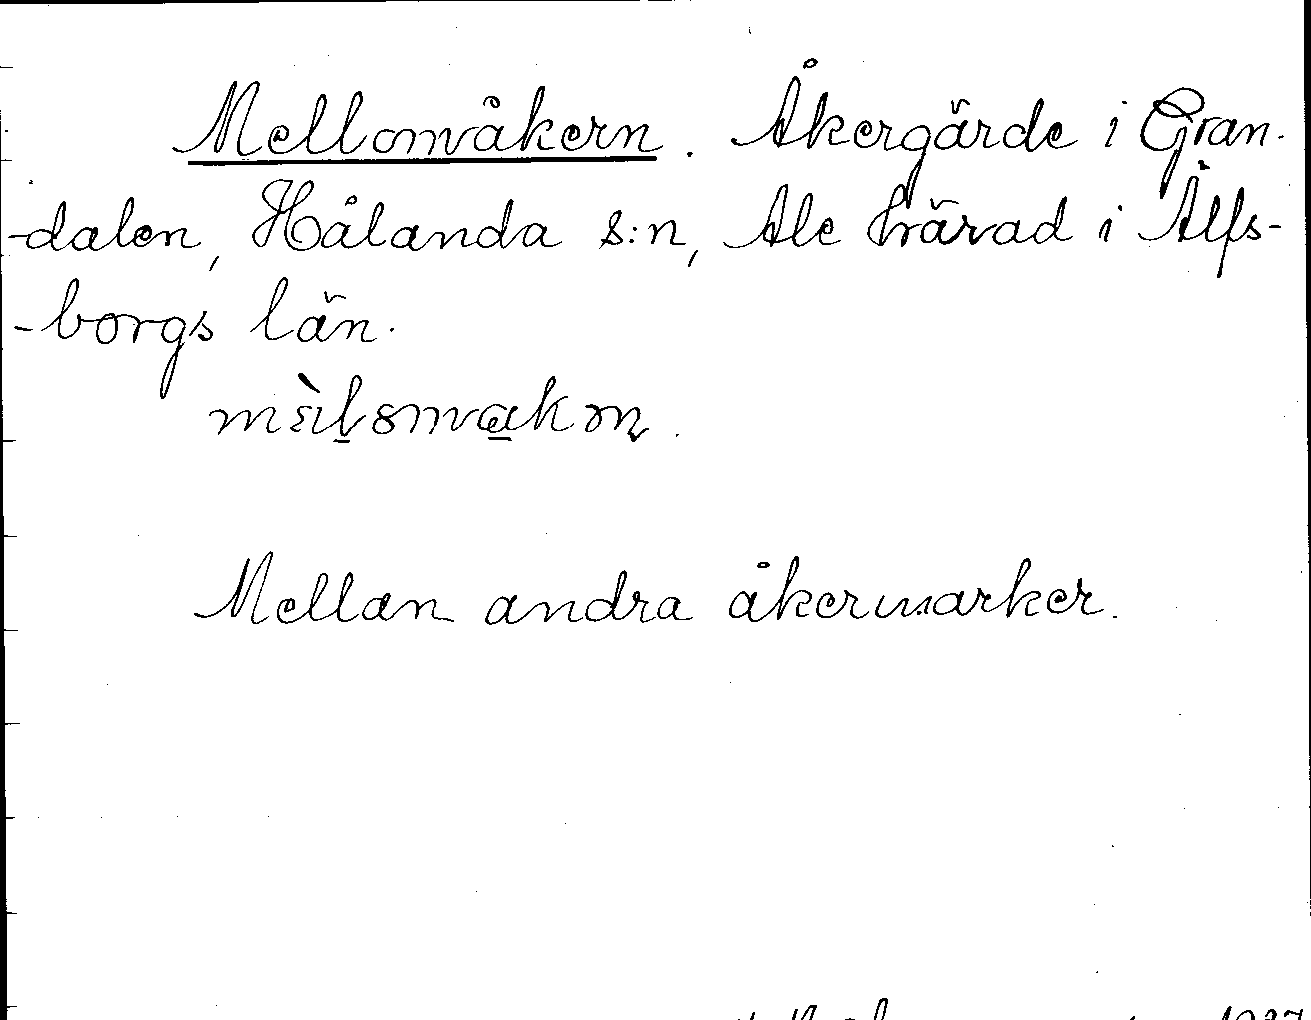 Mellomåkern. Åkergärde i Gran-
-dalen, Hålanda s:n, Ale härad i Älfs-
-borgs län.
Mellan andra åkermarker.